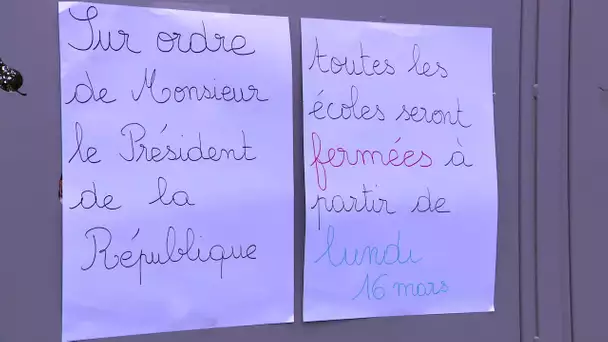 Sur ordre
de Monsieur
le Président
de la
République
toutes les
écoles seront
fermées à
partir de
lundi
16 mars